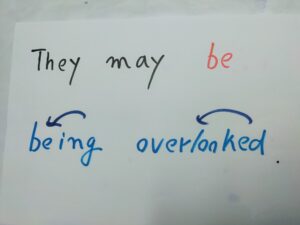 They may be
being overlooked